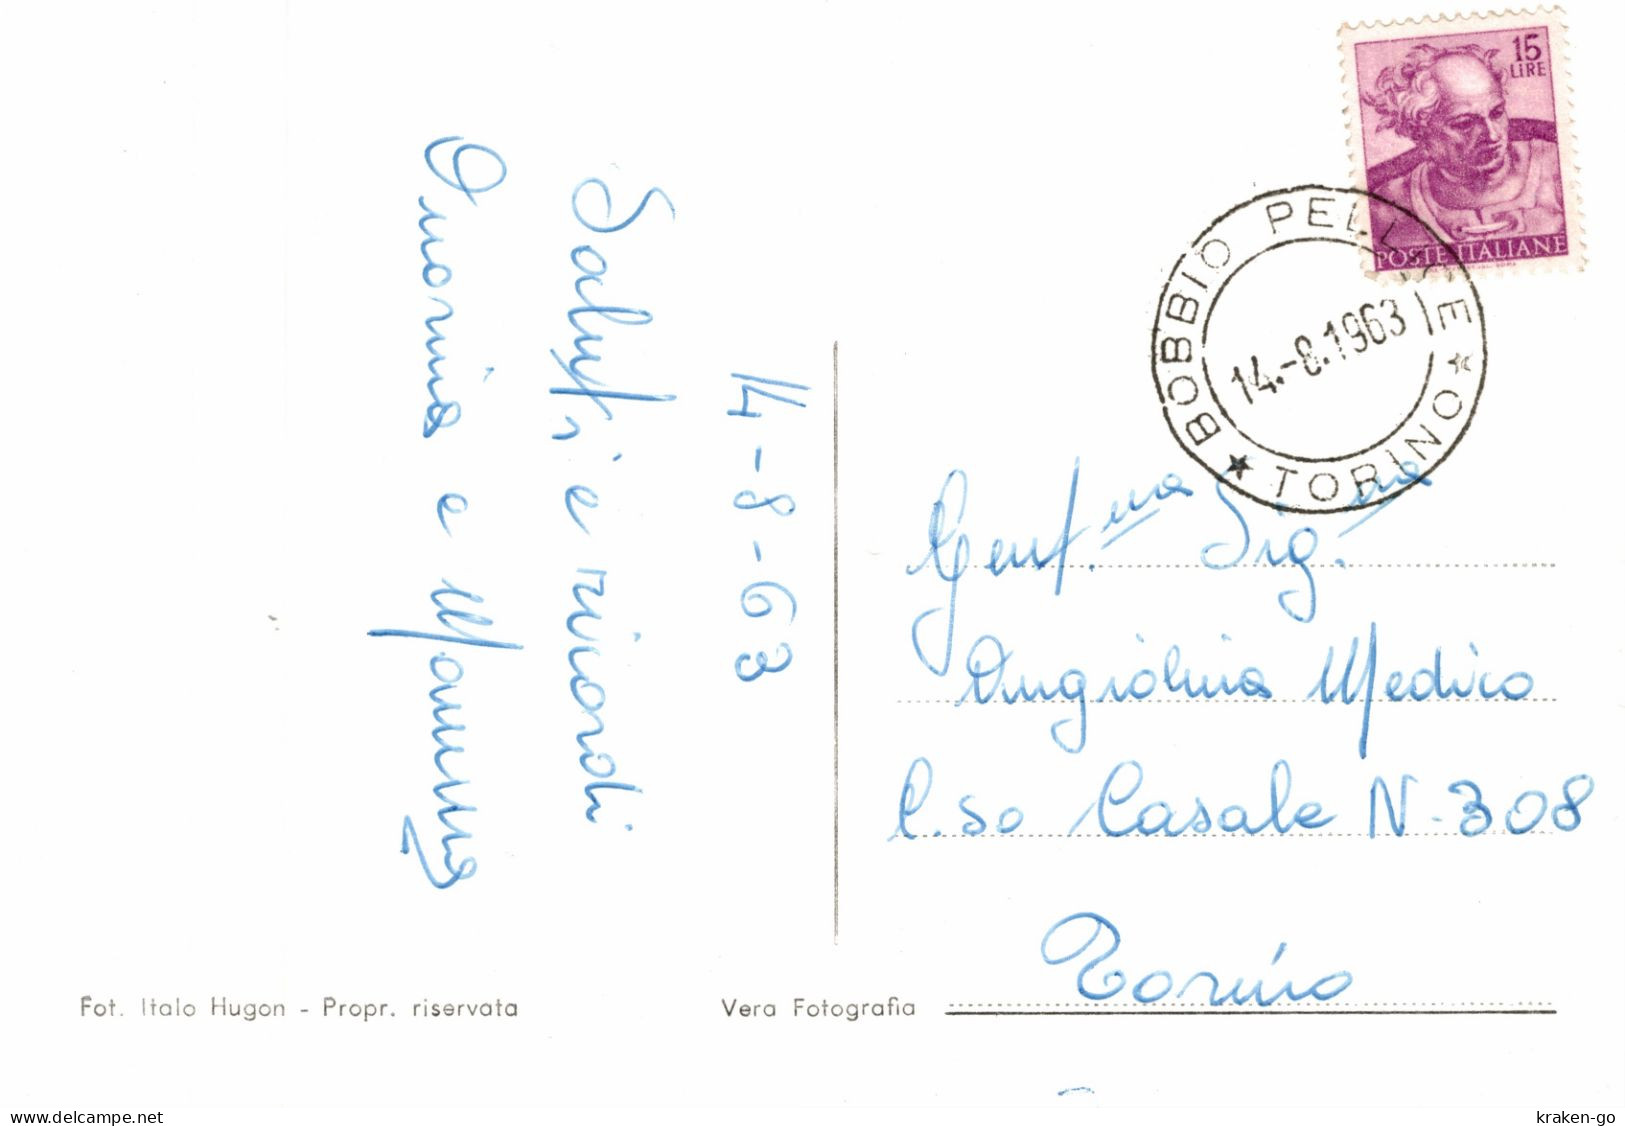 14-8-63
Saluti e ricordi
e Mamma
15
LIRE
POSTE ITALIANE
BOBBIO PELLICE
14.-8.1963
★ TORINO ★
Gent.ma Sig.na
Angiolina Medico
C.so Casale N. 308
Torino
Fot. Italo Hugon - Propr. riservata
Vera Fotografia
delcampe.net
kraken-go